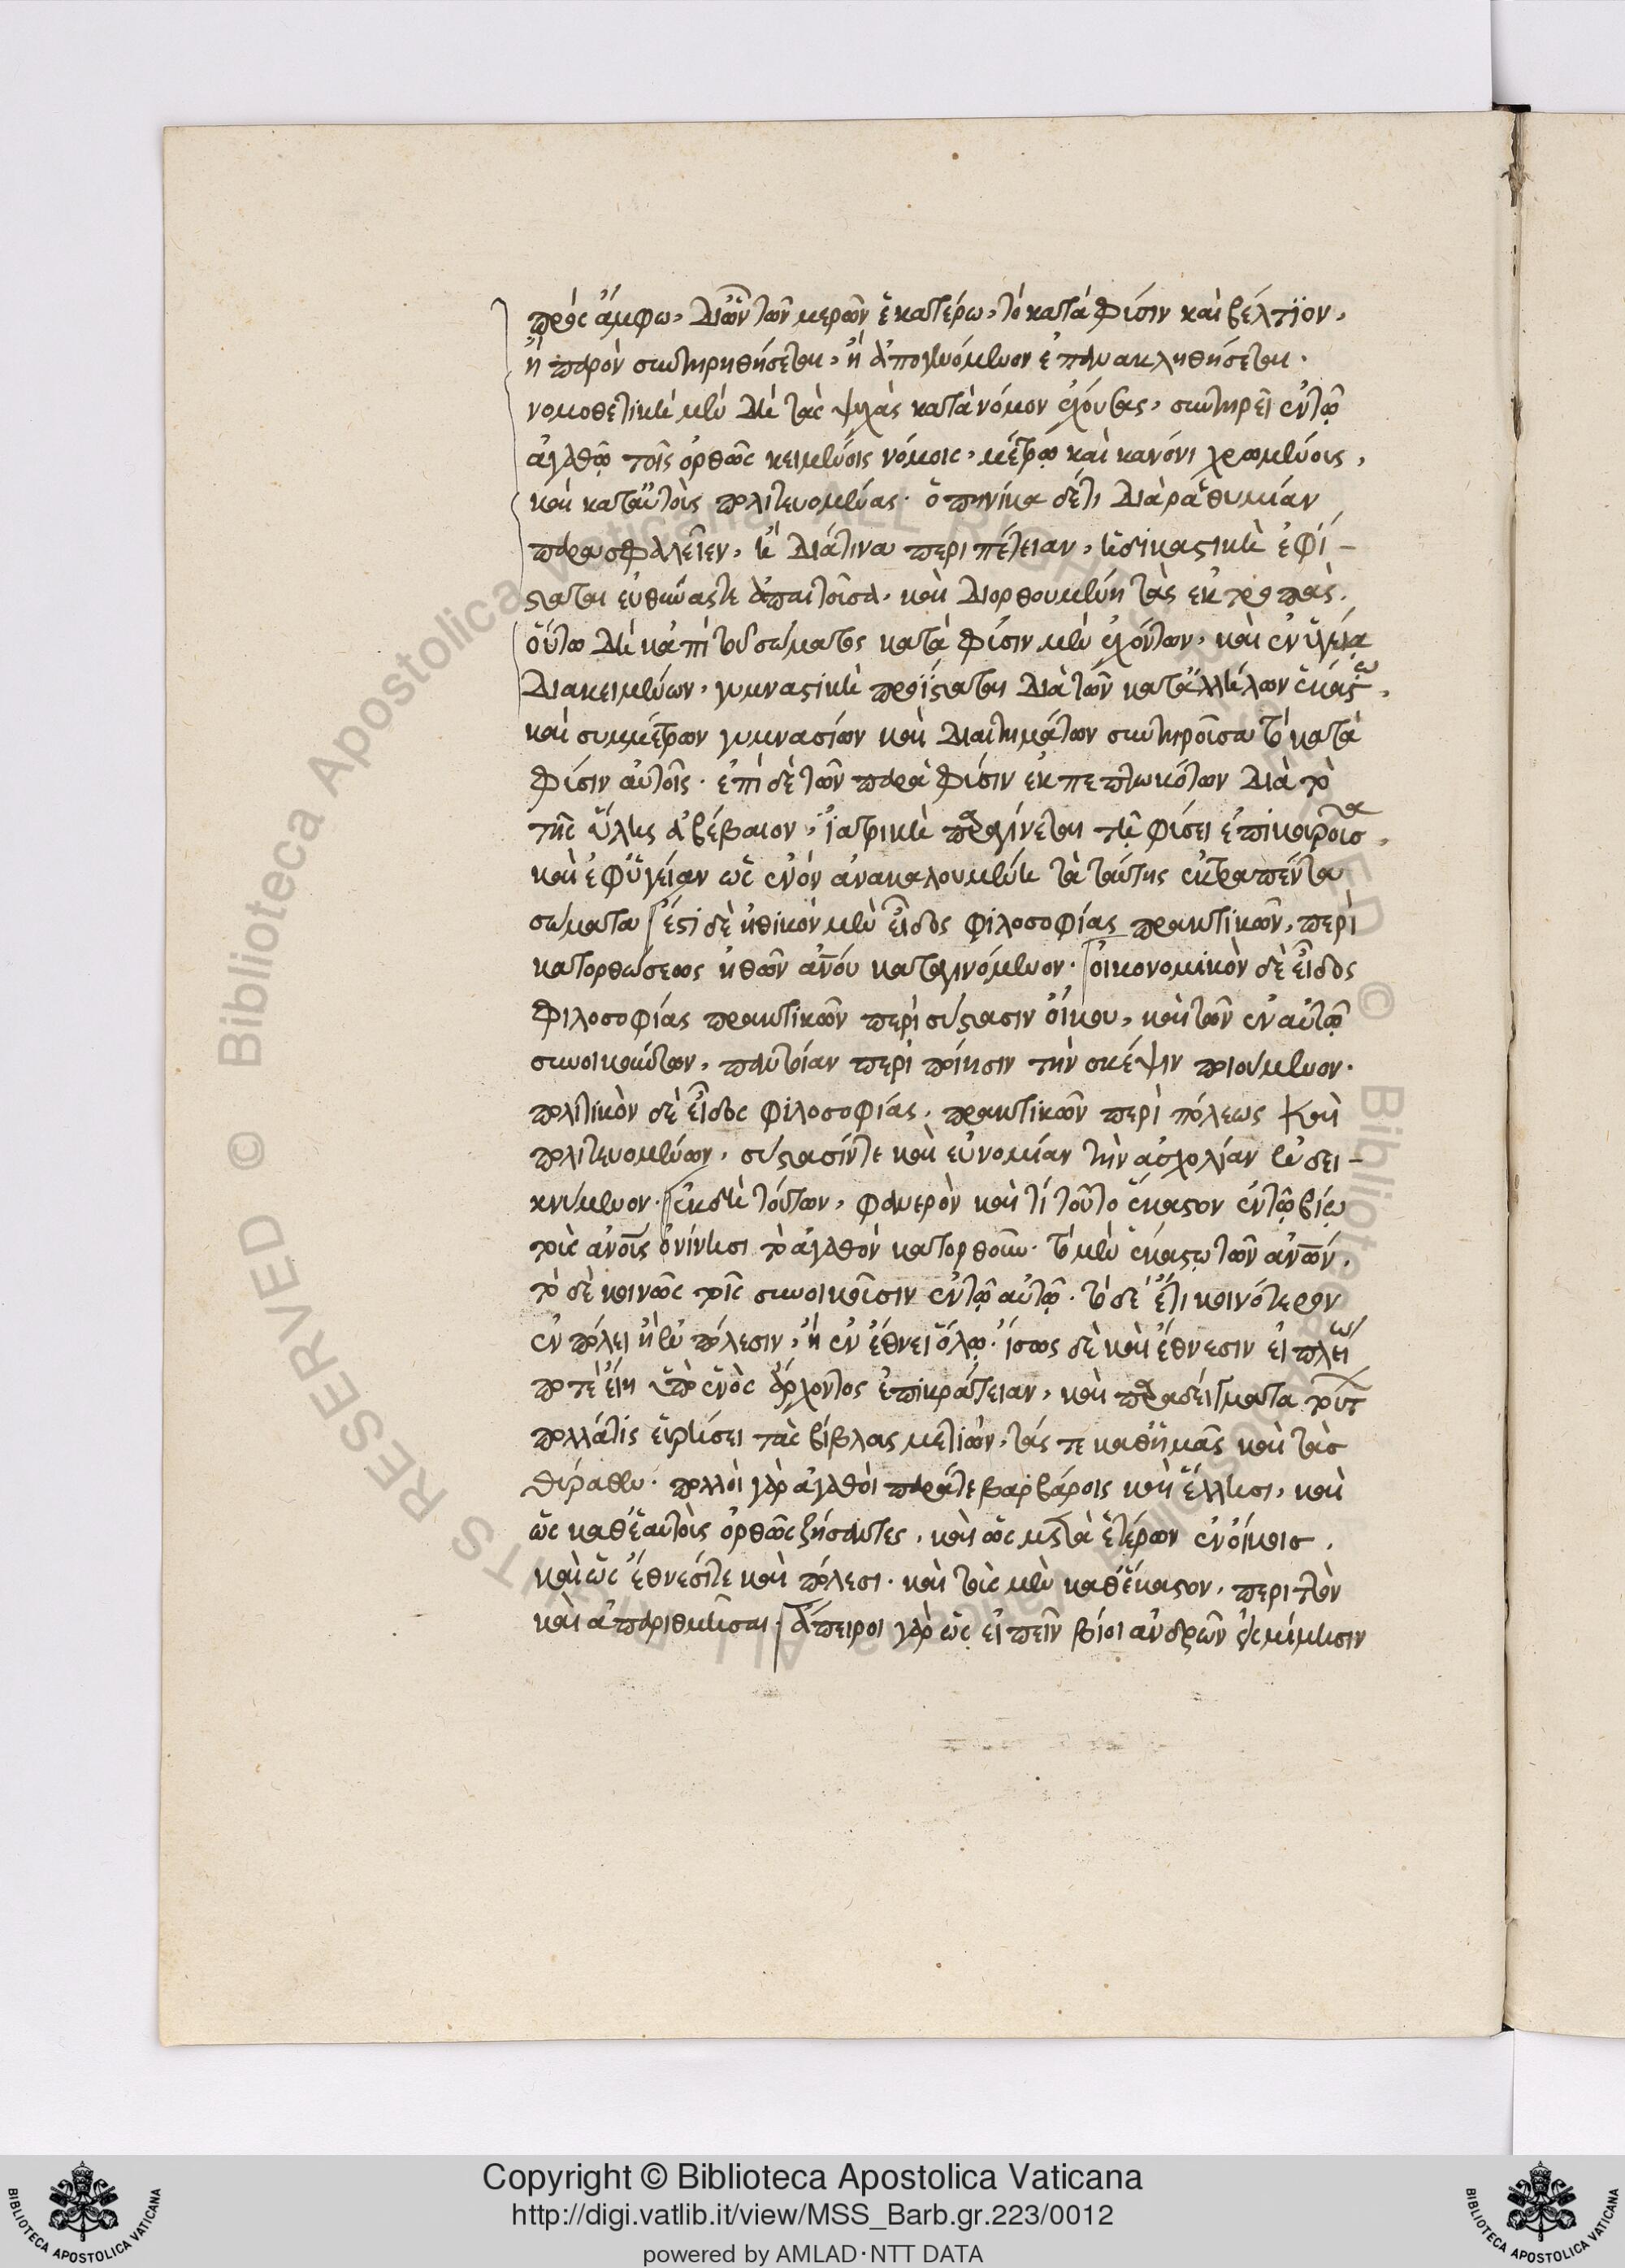 πρὸς ἄμφω, δι' ὧν τῶν μερῶν ἑκατέρω, τὸ κατὰ φύσιν καὶ βέλτϊον,
ἢ παρὸν συντηρηθήσεται, ἢ ἀπογενόμενον ἐπανακληθήσεται.
νομοθετικὴ μὲν δὴ τὰς ψυχὰς κατὰ νόμον ἐχούσας, συντηρεῖ ἐν τῷ
ἀγαθῷ τοῖς ὀρθῶς κειμένοις νόμοις, μέτρῳ καὶ κανόνι χρωμένοις,
καὶ κατ' αὐτοὺς πολιτευομένας. ὁπηνίκα δέ τι διὰ ῥᾳθυμίαν
παρασφαλεῖεν, ἢ διά τινα περιπέτειαν, ἡ δικαστικὴ ἐφί-
σταται εὐθύνας τε ἀπαιτοῦσα, καὶ διορθουμένη τὰς ἐκτροπάς.
οὕτω δὴ κἀπὶ τοῦ σώματος κατὰ φύσιν μὲν ἐχόντων, καὶ ἐν ὑγείᾳ
διακειμένων, γυμναστικὴ προΐσταται διὰ τῶν καταλλήλων ἑκάστῳ,
καὶ συμμέτρων γυμνασίων καὶ διαιτημάτων συντηροῦσα τὸ κατὰ
φύσιν αὐτοῖς. ἐπὶ δὲ τῶν παρὰ φύσιν ἐκπεπτωκότων διὰ τὸ
τῆς ὕλης ἀβέβαιον, ἰατρικὴ παραγίνεται τῇ φύσει ἐπικουροῦσα,
καὶ ἐφ' ὑγείαν ὡς ἐνὸν ἀνακαλουμένη τὰ ταύτης ἐκτραπέντα
σώματα ἔστι δὲ ἠθικὸν μὲν εἶδος φιλοσοφίας πρακτικῶν, περὶ
κατορθώσεως ἠθῶν ἀνου καταγινόμενον. οἰκονομικὸν δὲ εἶδος
φιλοσοφίας πρακτικῶν περὶ σύστασιν οἴκου, καὶ τῶν ἐν αὐτῷ
συνοικούντων, παντοίαν περὶ ποίησιν τὴν σκέψιν ποιούμενον.
πολιτικὸν δὲ εἶδος φιλοσοφίας, πρακτικῶν περὶ πόλεως καὶ
πολιτευομένων, σύστασίν τε καὶ εὐνομίαν τὴν ἀσχολίαν ἐνδει-
κνύμενον. ἐκ δὴ τούτων, φανερὸν καὶ τί τοῦτο ἕκαστον ἐν τῷ βίῳ
τοῖς ἀνοις ὀνίνησι τὸ ἀγαθὸν κατορθοῦν. τὸ μὲν ἑκάστῳ τῶν ἀνων,
τὸ δὲ κοινῶς τοῖς συνοικοῦσιν ἐν τῷ αὐτῷ. τὸ δὲ ἔτι κοινότερον
ἐν πόλει ἢ ἐν πόλεσιν, ἢ ἐν ἔθνει ὅλῳ. ἴσως δὲ καὶ ἔθνεσιν εἰ πλείω
ποτὲ εἴη ὑπὸ ἑνὸς ἄρχοντος ἐπικράτειαν, καὶ παραδείγματα τούτων
πολλά τις εὑρήσει τὰς βίβλας μετιών, τάς τε καθ' ἡμᾶς καὶ τὰς
θύραθεν. πολλοὶ γὰρ ἀγαθοὶ παρά τε βαρβάροις καὶ ἕλλησι, καὶ
ὡς καθ' ἑαυτοὺς ὀρθῶς ζήσαντες, καὶ ὡς μετὰ ἑτέρων ἐν οἴκοις,
καὶ ὡς ἔθνεσί τε καὶ πόλεσι. καὶ τοὺς μὲν καθ' ἕκαστον, περιττὸν
καὶ ἀπαριθμῆσαι. ἄπειροι γὰρ ὡς εἰπεῖν βίοι ἀνδρῶν ἐς μίμησιν
Copyright © Biblioteca Apostolica Vaticana
http://digi.vatlib.it/view/MSS_Barb.gr.223/0012
powered by AMLAD·NTT DATA